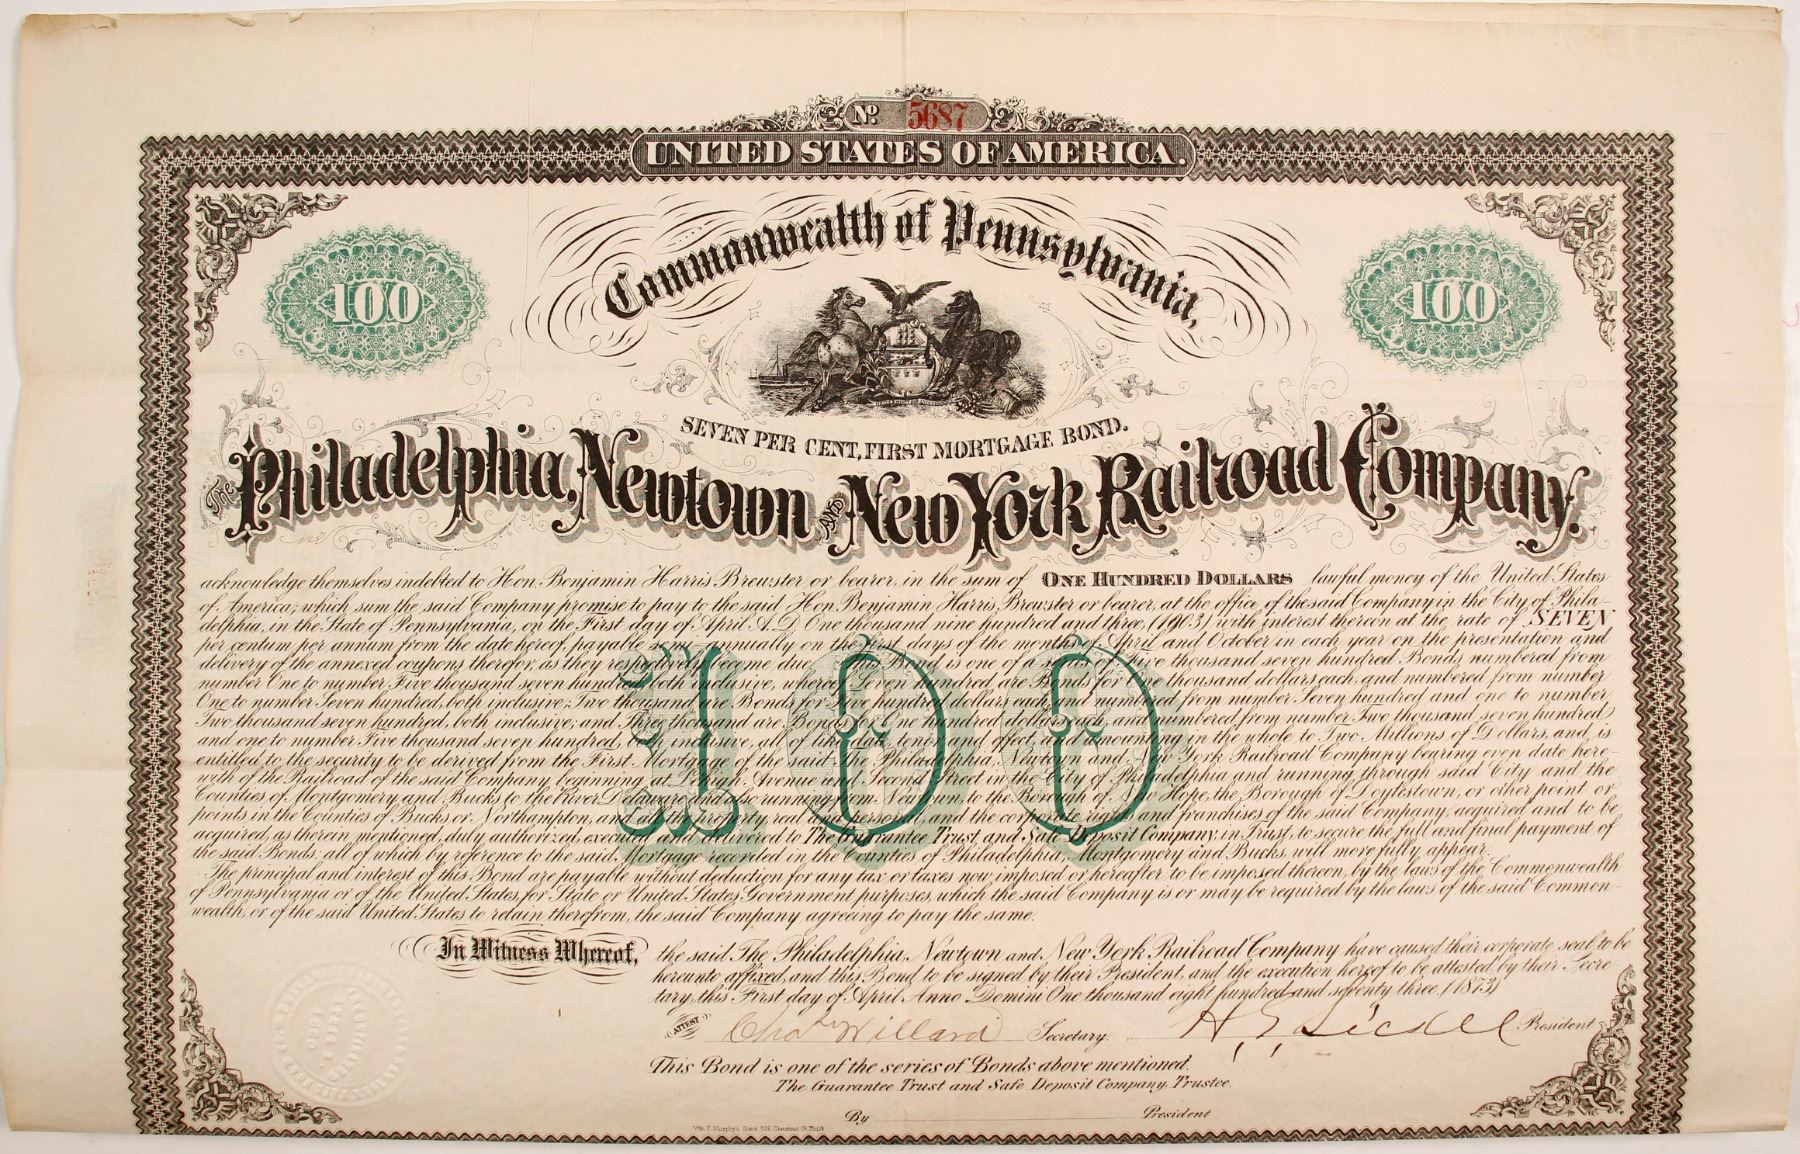 No. 5687
UNITED STATES OF AMERICA.
Commonwealth of Pennsylvania,
100
100
SEVEN PER CENT, FIRST MORTGAGE BOND.
The Philadelphia, Newtown AND New York Railroad Company.
acknowledge themselves indebted to Hon. Benjamin Harris Brewster or bearer, in the sum of ONE HUNDRED DOLLARS lawful money of the United States
of America; which sum the said Company promise to pay to the said Hon. Benjamin Harris Brewster or bearer, at the office of the said Company in the City of Phila-
delphia, in the State of Pennsylvania, on the First day of April A.D. One thousand nine hundred and three, (1903) with interest thereon at the rate of SEVEN
per centum per annum from the date hereof, payable semi annually on the first days of the months of April and October in each year on the presentation and
delivery of the annexed coupons therefor, as they respectively become due. This Bond is one of a series of Five thousand seven hundred Bonds, numbered from
number One to number Five thousand seven hundred both inclusive, whereof Seven hundred, are Bonds for One thousand dollars each, and numbered from number
One to number Seven hundred, both inclusive; Two thousand are Bonds for Five hundred dollars each, and numbered from number Seven hundred and one to number
Two thousand seven hundred, both inclusive; and, Three thousand are, Bonds for One hundred dollars each, and numbered from number Two thousand seven hundred
and one to number Five thousand seven hundred, both inclusive, all of like date, tenor, and effect, and amounting in the whole to Two Millions of Dollars, and, is
entitled to the security to be derived from the First Mortgage of the said The Philadelphia, Newtown and New York Railroad Company bearing even date here-
with of the Railroad of the said Company beginning at Lehigh Avenue and Second Street in the City of Philadelphia and running through said City and the
Counties of Montgomery and Bucks to the River Delaware and also running from Newtown, to the Borough of New Hope, the Borough of Doylestown, or other point or
points in the Counties of Bucks or Northampton, and all the property, real and personal, and the corporate rights and franchises of the said Company, acquired and to be
acquired, as therein mentioned, duly authorized, executed and delivered to The Guarantee Trust and Safe Deposit Company, in Trust, to secure the full and final payment of
the said Bonds: all of which by reference to the said Mortgage recorded in the Counties of Philadelphia, Montgomery and Bucks, will more fully appear.
The principal and interest of this Bond are payable without deduction for any tax or taxes now imposed or hereafter to be imposed thereon, by the laws of the Commonwealth
of Pennsylvania or of the United States, for State or United States Government purposes, which the said Company is or may be required by the laws of the said Common-
wealth, or of the said United States to retain therefrom, the said Company agreeing to pay the same.
100
In Witness Whereof, the said The Philadelphia, Newtown and New York Railroad Company have caused their corporate seal to be
hereunto affixed, and this Bond to be signed by their President, and the execution hereof to be attested by their Secre-
tary, this First day of April Anno Domini One thousand eight hundred and seventy three. (1873)
ATTEST Chas Willard Secretary. President
This Bond is one of the series of Bonds above mentioned.
The Guarantee Trust and Safe Deposit Company, Trustee.
By President
Wm. F. Murphy's Sons 509, Chestnut St. Phila